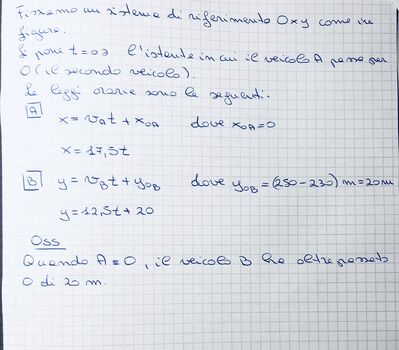 Fissiamo un sistema di riferimento Oxy come in
figura.
Si pone t=0s l'istante in cui il veicolo A passa per
O (il secondo veicolo).
Le leggi orarie sono le seguenti:
A
x = vAt + x0A dove x0A=0
x = 17,5t
B y = vBt + y0B dove y0B = (250-230) m = 20m
y = 12,5t + 20
Oss
Quando A≡O, il veicolo B ha oltrepassato
O di 20 m.